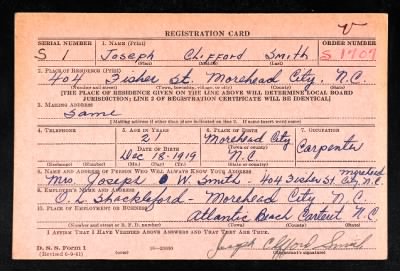 REGISTRATION CARD
SERIAL NUMBER 1. NAME (Print) ORDER NUMBER
S 1 Joseph Clifford Smith S 1707
(First) (Middle) (Last)
2. PLACE OF RESIDENCE (Print)
404 Fisher St. Morehead City, N.C.
(Number and street) (Town, township, village, or city) (County) (State)
[THE PLACE OF RESIDENCE GIVEN ON THE LINE ABOVE WILL DETERMINE LOCAL BOARD
JURISDICTION; LINE 2 OF REGISTRATION CERTIFICATE WILL BE IDENTICAL]
3. MAILING ADDRESS
Same
[Mailing address if other than place indicated on line 2. If same insert word same]
4. TELEPHONE 5. AGE IN YEARS 6. PLACE OF BIRTH 7. OCCUPATION
21 Morehead City Carpenter
DATE OF BIRTH (Town or county)
Dec 18-1919 N.C
(Exchange) (Number) (Mo.) (Day) (Yr.) (State or country)
8. NAME AND ADDRESS OF PERSON WHO WILL ALWAYS KNOW YOUR ADDRESS
Mrs Joseph W. Smith - 404 Fisher St. Morehead City, N.C.
9. EMPLOYER'S NAME AND ADDRESS
O. L. Shackleford - Morehead City N.C.
10. PLACE OF EMPLOYMENT OR BUSINESS
Atlantic Beach Carteret N.C.
(Number and street or R. F. D. number) (Town) (County) (State)
I AFFIRM THAT I HAVE VERIFIED ABOVE ANSWERS AND THAT THEY ARE TRUE.
D. S. S. Form 1
(Revised 6-9-41) (over) Joseph Clifford Smith